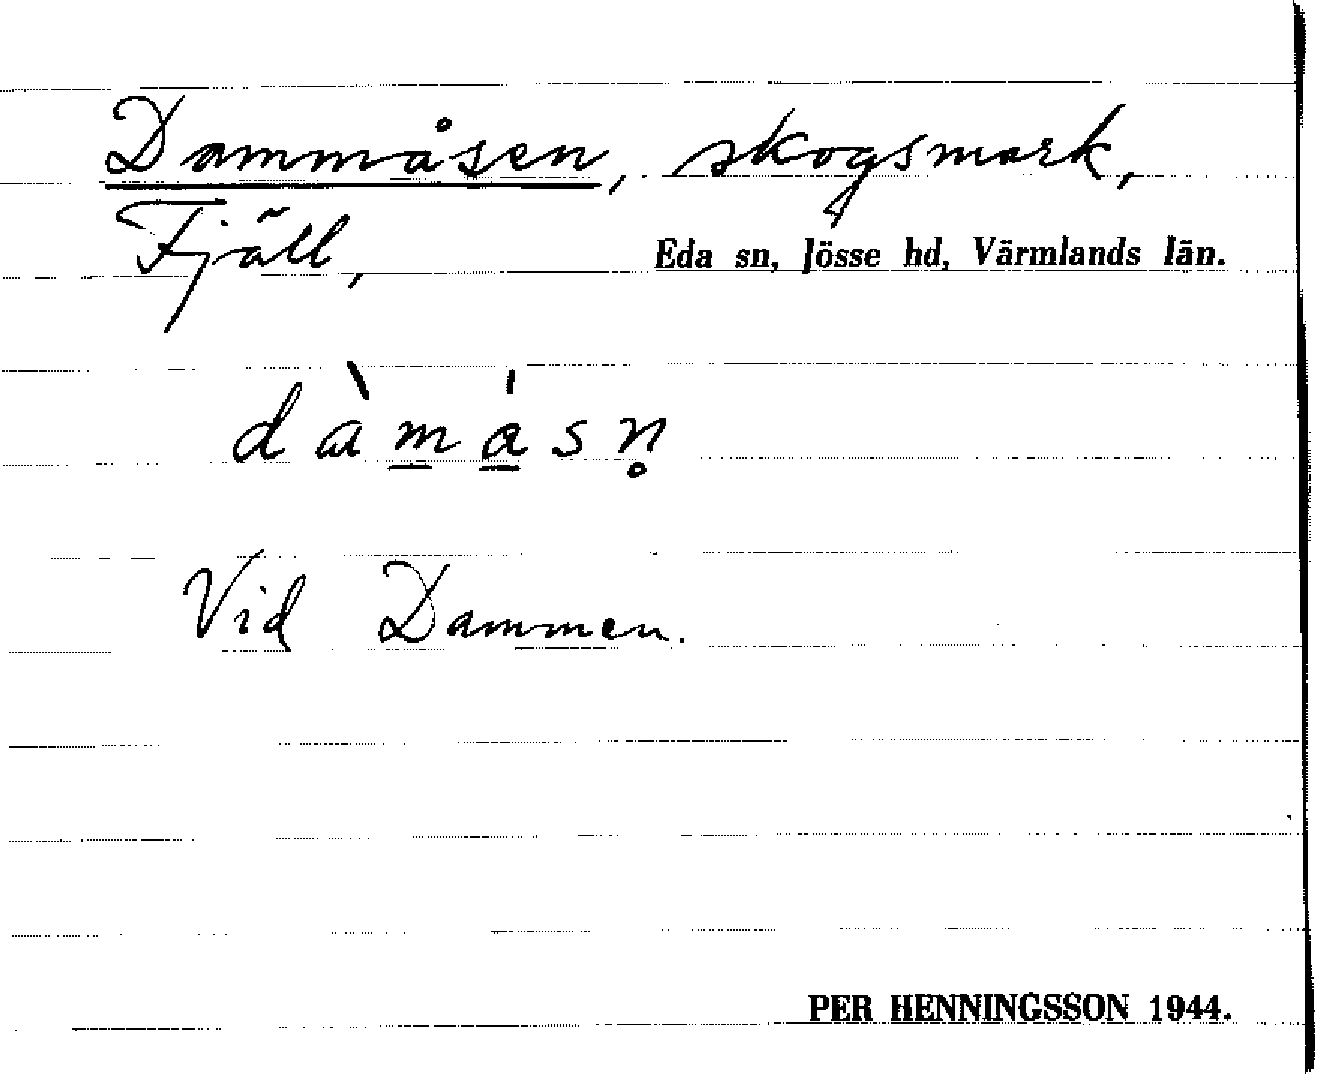 Dammåsen, skogsmark,
Fjäll, Eda sn, Jösse hd, Värmlands län.
dàm̲á̲sn̥
Vid Dammen.
PER HENNINGSSON 1944.